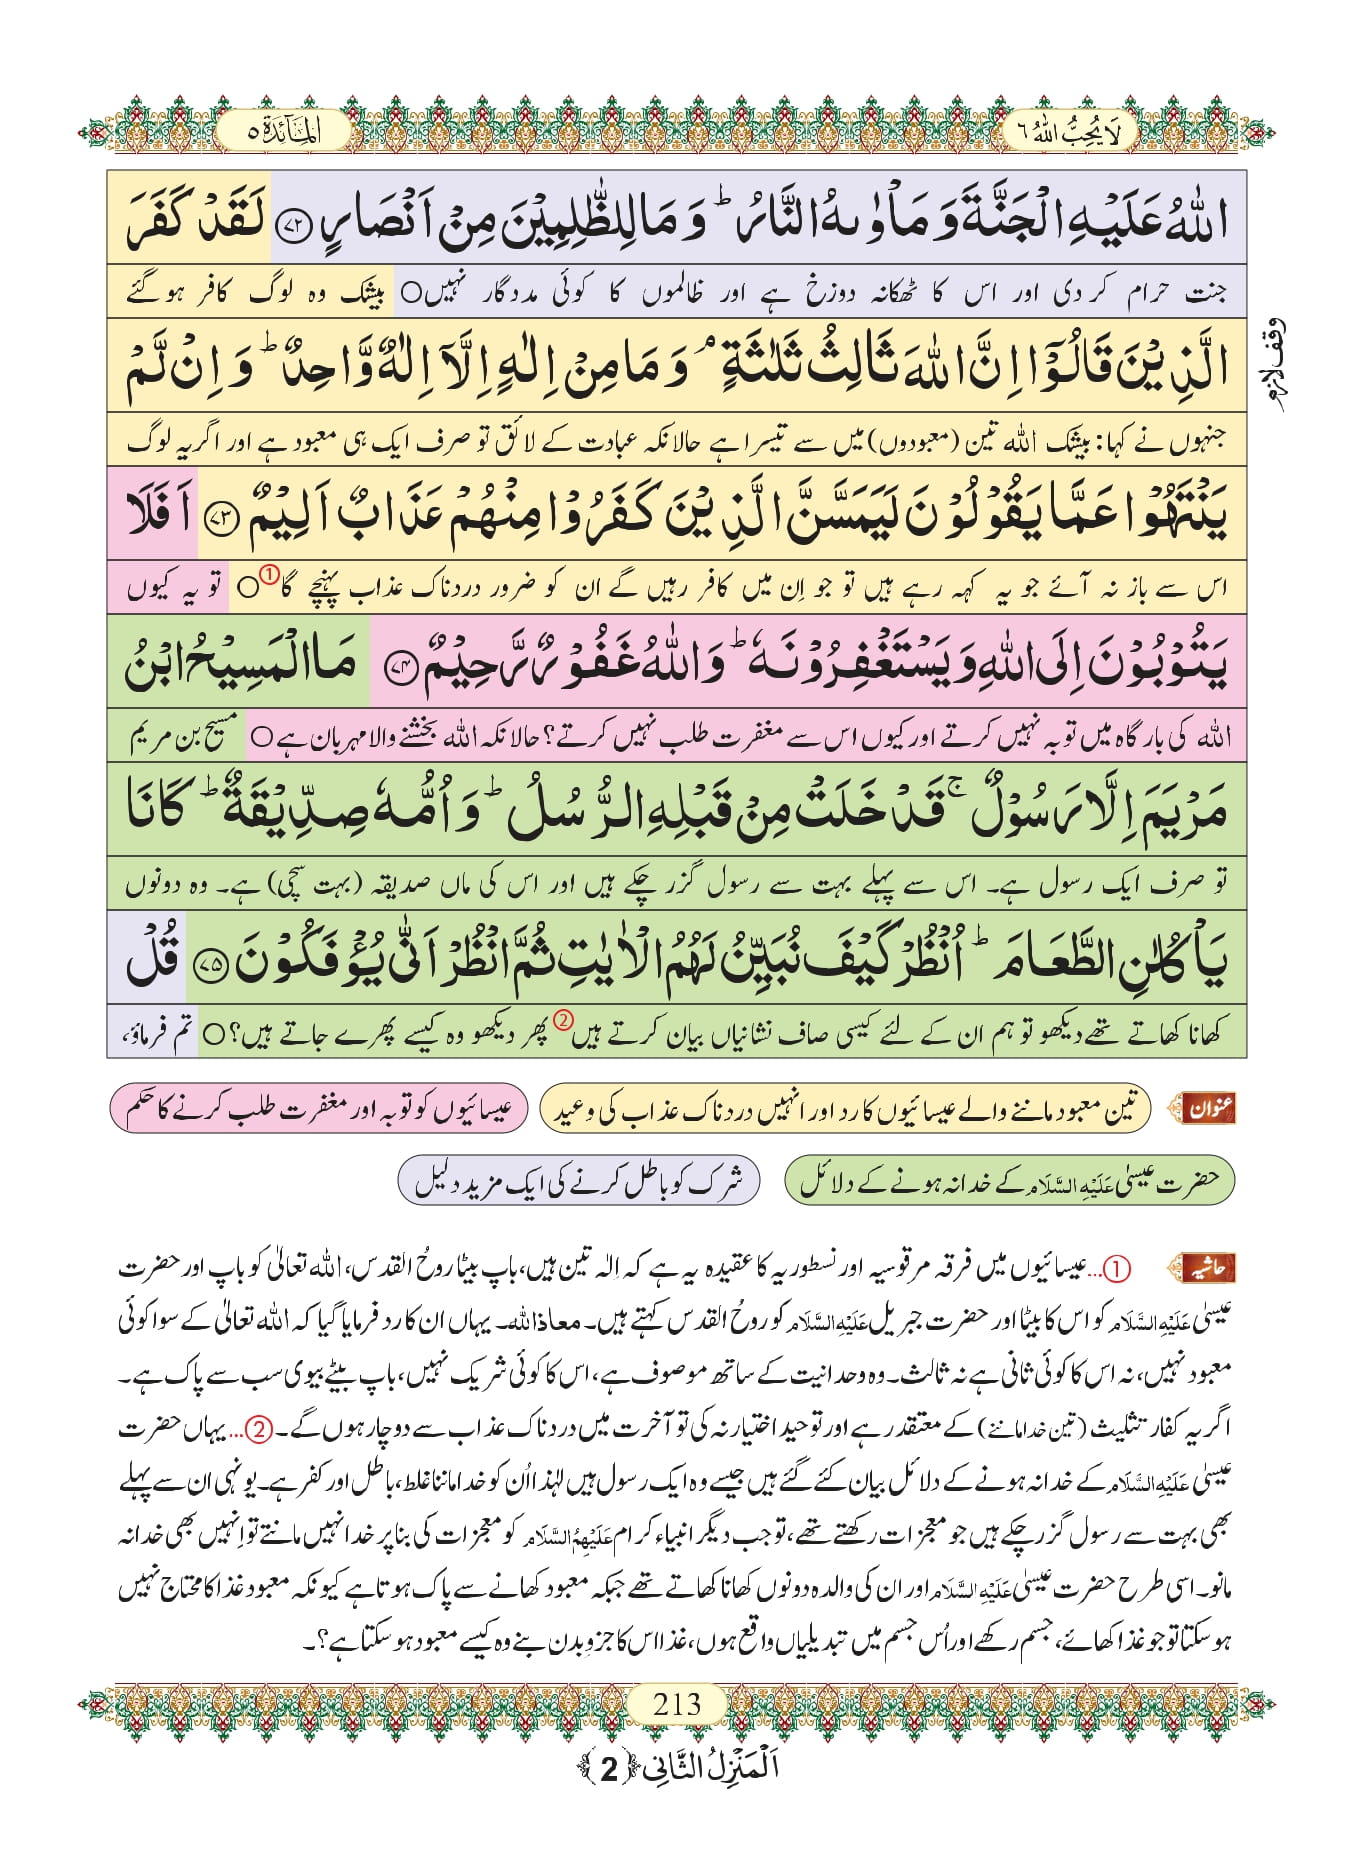 لَا یُحِبُّ اللّٰهُ ٦
اَلْمَآئِدَة ٥
اللّٰهُ عَلَیْهِ الْجَنَّةَ وَ مَاْوٰىهُ النَّارُؕ وَ مَا لِلظّٰلِمِیْنَ مِنْ اَنْصَارٍ ﴿۷۲﴾ لَقَدْ كَفَرَ
جنت حرام کر دی اور اس کا ٹھکانہ دوزخ ہے اور ظالموں کا کوئی مددگار نہیں○ بیشک وہ لوگ کافر ہو گئے
الَّذِیْنَ قَالُوْۤا اِنَّ اللّٰهَ ثَالِثُ ثَلٰثَةٍۘ وَ مَا مِنْ اِلٰهٍ اِلَّاۤ اِلٰهٌ وَّاحِدٌؕ وَ اِنْ لَّمْ
وقف لازم
جنہوں نے کہا: بیشک اللہ تین (معبودوں) میں سے تیسرا ہے حالانکہ عبادت کے لائق تو صرف ایک ہی معبود ہے اور اگر یہ لوگ
یَنْتَهُوْا عَمَّا یَقُوْلُوْنَ لَیَمَسَّنَّ الَّذِیْنَ كَفَرُوْا مِنْهُمْ عَذَابٌ اَلِیْمٌ ﴿۷۳﴾ اَفَلَا
اس سے باز نہ آئے جو یہ کہہ رہے ہیں تو جو اِن میں کافر رہیں گے ان کو ضرور دردناک عذاب پہنچے گا①○ تو یہ کیوں
یَتُوْبُوْنَ اِلَى اللّٰهِ وَ یَسْتَغْفِرُوْنَهٗؕ وَ اللّٰهُ غَفُوْرٌ رَّحِیْمٌ ﴿۷۴﴾ مَا الْمَسِیْحُ ابْنُ
اللہ کی بارگاہ میں توبہ نہیں کرتے اور کیوں اس سے مغفرت طلب نہیں کرتے؟ حالانکہ اللہ بخشنے والا مہربان ہے○ مسیح بن مریم
مَرْیَمَ اِلَّا رَسُوْلٌۚ قَدْ خَلَتْ مِنْ قَبْلِهِ الرُّسُلُؕ وَ اُمُّهٗ صِدِّیْقَةٌؕ كَانَا
تو صرف ایک رسول ہے۔ اس سے پہلے بہت سے رسول گزر چکے ہیں اور اس کی ماں صدیقہ (بہت سچی) ہے۔ وہ دونوں
یَاْكُلٰنِ الطَّعَامَؕ اُنْظُرْ كَیْفَ نُبَیِّنُ لَهُمُ الْاٰیٰتِ ثُمَّ انْظُرْ اَنّٰى یُؤْفَكُوْنَ ﴿۷۵﴾ قُلْ
کھانا کھاتے تھے دیکھو تو ہم ان کے لئے کیسی صاف نشانیاں بیان کرتے ہیں② پھر دیکھو وہ کیسے پھرے جاتے ہیں؟○ تم فرماؤ،
عنوان تین معبود ماننے والے عیسائیوں کا رد اور انہیں دردناک عذاب کی وعید عیسائیوں کو توبہ اور مغفرت طلب کرنے کا حکم
حضرت عیسیٰ عَلَیْهِ السَّلَام کے خدا نہ ہونے کے دلائل شرک کو باطل کرنے کی ایک مزید دلیل
حاشیہ ①...عیسائیوں میں فرقہ مرقوسیہ اور نسطوریہ کا عقیدہ یہ ہے کہ اِلٰہ تین ہیں، باپ بیٹا روحُ القدس، اللہ تعالیٰ کو باپ اور حضرت
عیسیٰ عَلَیْهِ السَّلَام کو اس کا بیٹا اور حضرت جبریل عَلَیْهِ السَّلَام کو روحُ القدس کہتے ہیں۔ معاذ اللہ۔ یہاں ان کا رد فرمایا گیا کہ اللہ تعالیٰ کے سوا کوئی
معبود نہیں، نہ اس کا کوئی ثانی ہے نہ ثالث۔ وہ وحدانیت کے ساتھ موصوف ہے، اس کا کوئی شریک نہیں، باپ بیٹے بیوی سب سے پاک ہے۔
اگر یہ کفار تثلیث (تین خدا ماننے) کے معتقد رہے اور توحید اختیار نہ کی تو آخرت میں دردناک عذاب سے دوچار ہوں گے۔ ②...یہاں حضرت
عیسیٰ عَلَیْهِ السَّلَام کے خدا نہ ہونے کے دلائل بیان کئے گئے ہیں جیسے وہ ایک رسول ہیں لہٰذا اُن کو خدا ماننا غلط، باطل اور کفر ہے۔ یونہی ان سے پہلے
بھی بہت سے رسول گزر چکے ہیں جو معجزات رکھتے تھے، تو جب دیگر انبیاء کرام عَلَیْهِمُ السَّلَام کو معجزات کی بنا پر خدا نہیں مانتے تو اِنہیں بھی خدا نہ
مانو۔ اسی طرح حضرت عیسیٰ عَلَیْهِ السَّلَام اور ان کی والدہ دونوں کھانا کھاتے تھے جبکہ معبود کھانے سے پاک ہوتا ہے کیونکہ معبود غذا کا محتاج نہیں
ہو سکتا تو جو غذا کھائے، جسم رکھے اور اُس جسم میں تبدیلیاں واقع ہوں، غذا اس کا جزوِ بدن بنے وہ کیسے معبود ہو سکتا ہے؟۔
213
اَلْمَنْزِلُ الثَّانِی ﴿2﴾